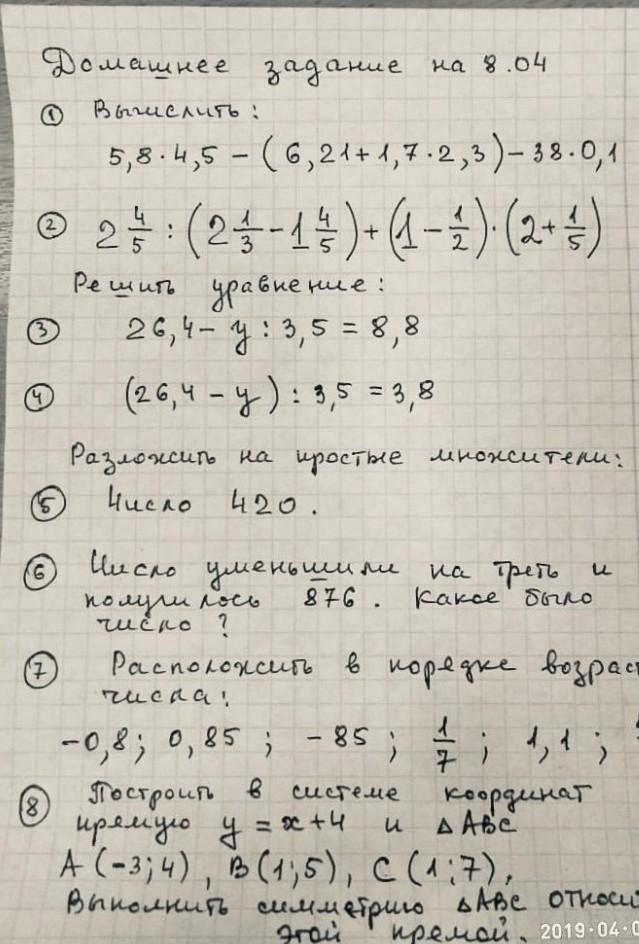 Домашнее задание на 8.04
① Вычислить:
5,8 · 4,5 - (6,21 + 1,7 · 2,3) - 38 · 0,1
② 2 4/5 : (2 1/3 - 1 4/5) + (1 - 1/2) · (2 + 1/5)
Решить уравнение:
③ 26,4 - y : 3,5 = 8,8
④ (26,4 - y) : 3,5 = 3,8
Разложить на простые множители:
⑤ Число 420.
⑥ Число уменьшили на треть и
получилось 876. Какое было
число?
⑦ Расположить в порядке возраст
числа:
-0,8; 0,85; -85; 1/7; 1,1;
⑧ Построить в системе координат
прямую y = x + 4 и △ABC
A(-3;4), B(1;5), C(1;7),
Выполнить симметрию △ABC относи
этой прямой.
2019·04·0